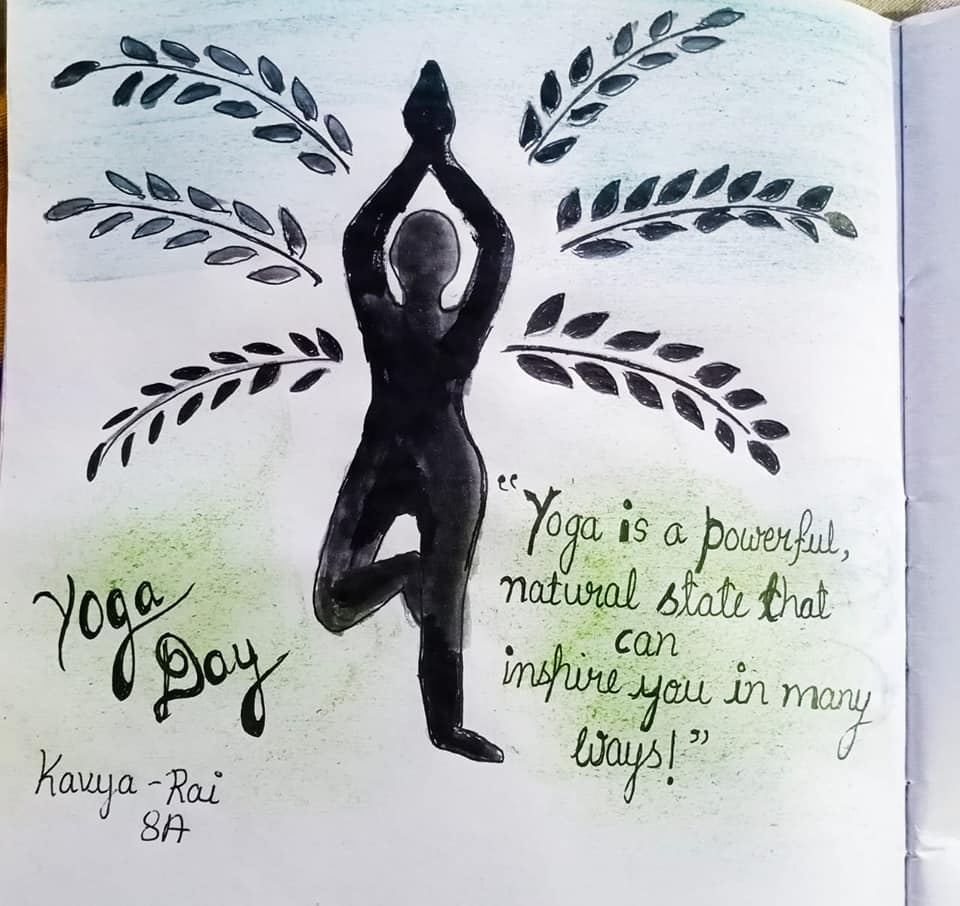 Yoga
Day
Kavya - Rai
8A
“Yoga is a powerful,
natural state that
can
inspire you in many
ways!”